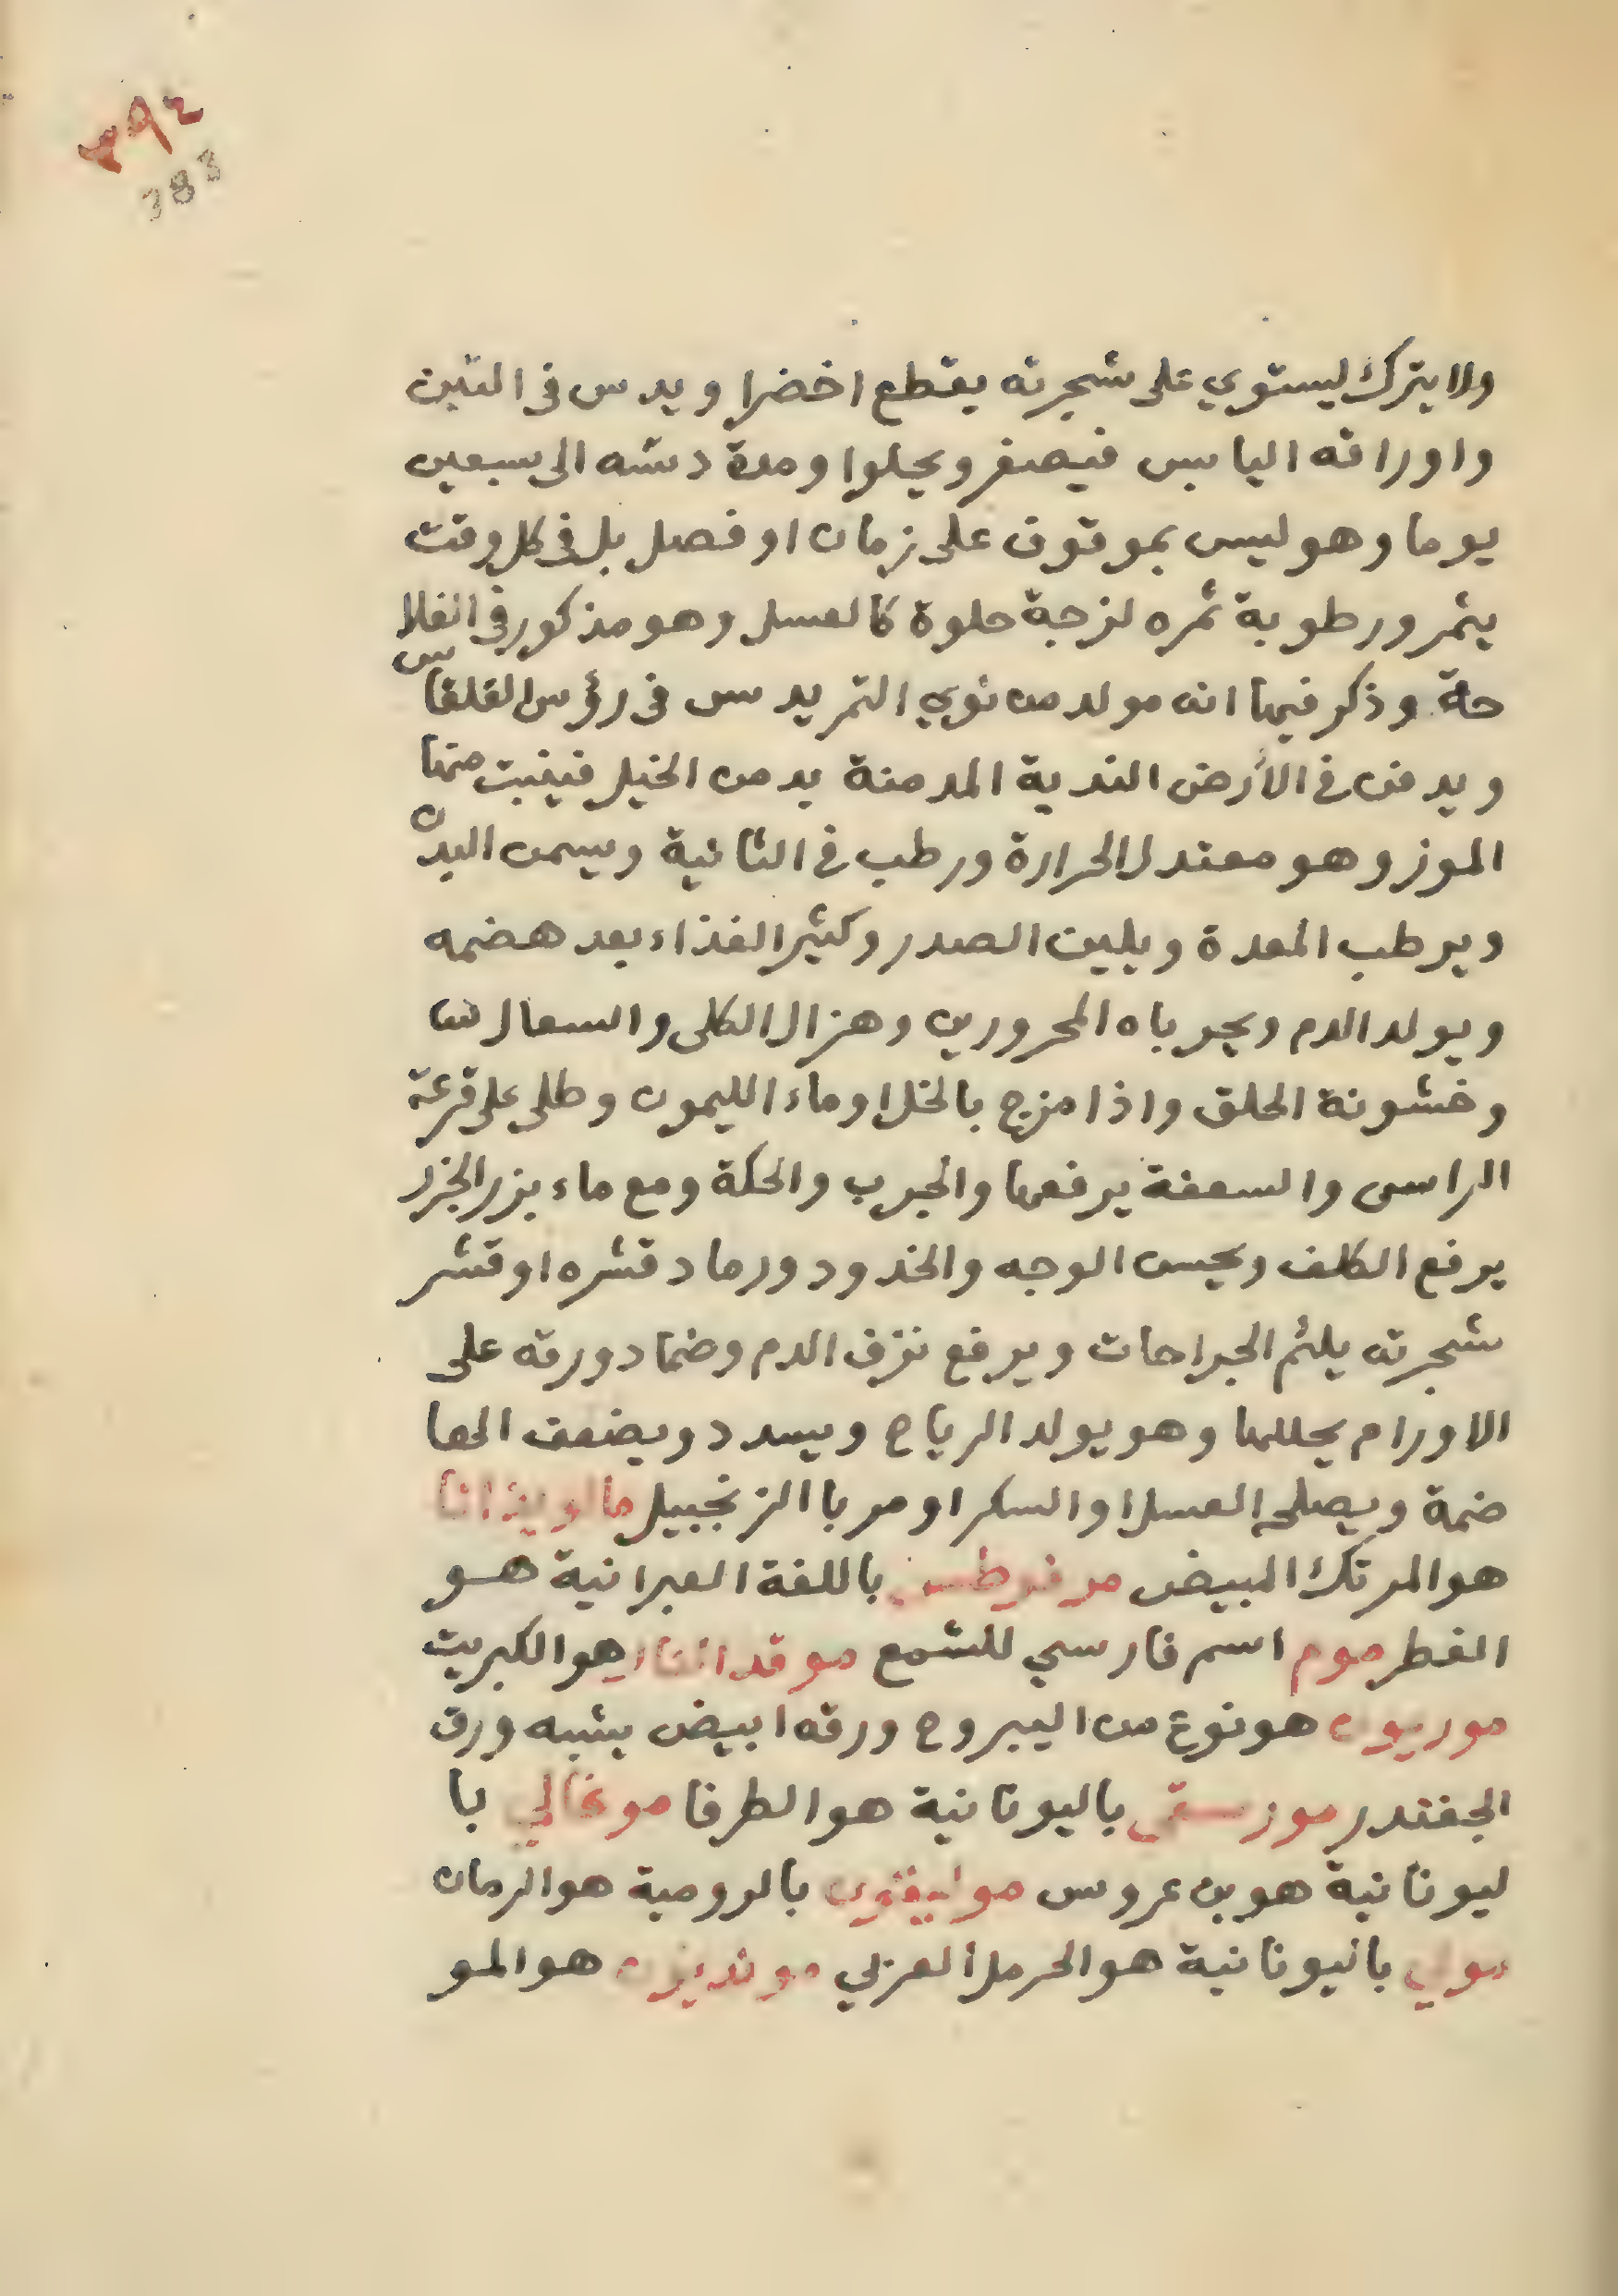 ٣٩٤
383
ولا يترك ليستوي على شجرته يقطع اخضرا ويدس في التبن
واوراقه اليابس فيصفر ويحلوا ومدة دسه الى سبعين
يوما وهو ليس بموقوف على زمان او فصل بل في كل وقت
يثمر ورطوبة ثمره لزجة حلوة كالعسل وهو مذكور في الفلا
حة وذكر فيها انه مولد من نوي التمر يدس في رؤس القلقاس
ويدفن في الأرض الندية المدمنة بدمن الخيل فينبت منها
الموز وهو معتدل الحرارة ورطب في الثانية ويسمن البدن
ويرطب المعدة ويلين الصدر وكثير الغذاء بعد هضمه
ويولد الدم ويحر باه المحرورين وهزال الكلى والسعال
وخشونة الحلق واذا مزج بالخل او ماء الليمون وطلى على قرعة
الراس والسعفة يرفعها والجرب والحكة ومع ماء بزر الجزر
يرفع الكلف ويحسن الوجه والخدود ورماد قشره او قشر
شجرته يلئم الجراحات ويرفع نزف الدم وضماد ورقه على
الاورام يحللها وهو يولد الرياح ويسدد ويضعف الها
ضمة ويصلحه العسل او السكر او مربا الزنجبيل
هو المرتك المبيض باللغة العبرانية هو
الفطر موم اسم فارسي للشمع موقد النار هو الكبريت
موريون هو نوع من اليبروح ورقه ابيض يشبه ورق
الجغندر باليونانية هو الطرفا موغالي با
ليونانية هو بن عروس بالرومية هو الرمان
مولي باليونانية هو الحرمل العربي هو المو